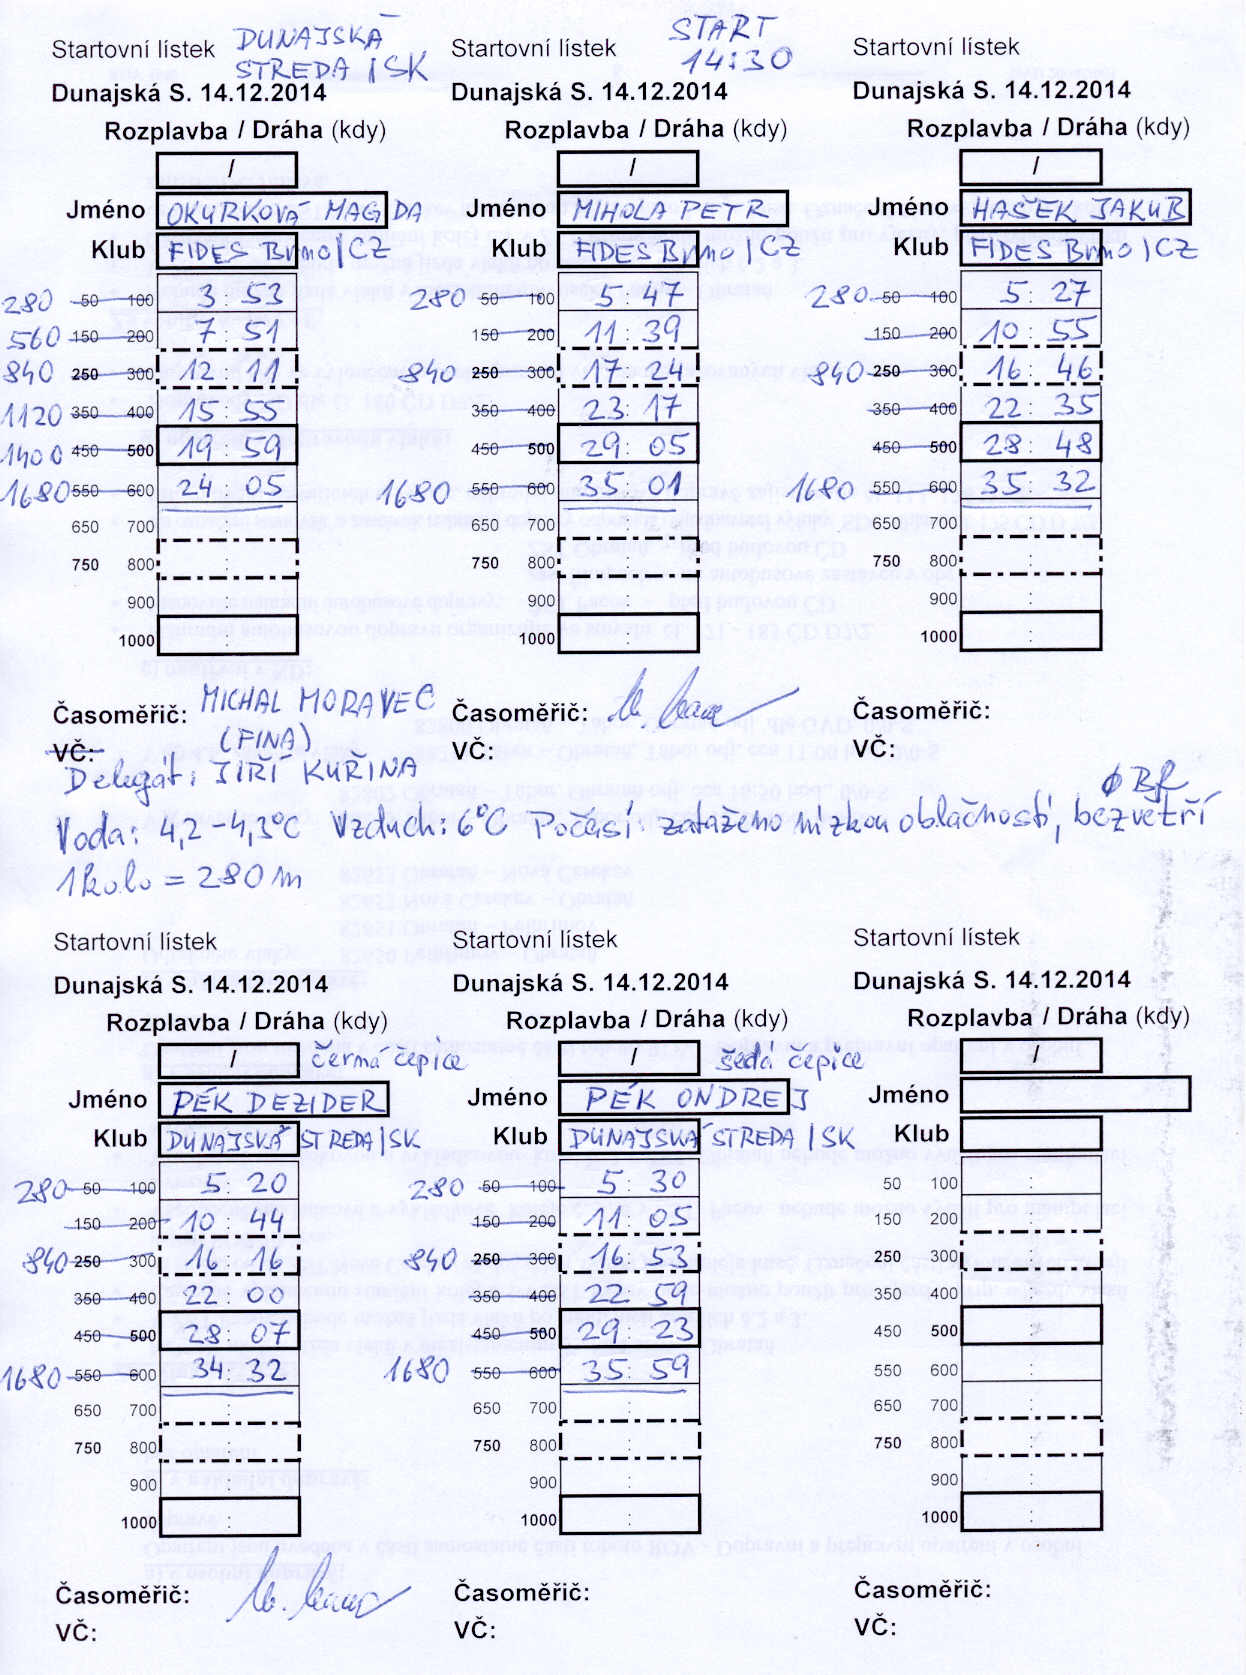 Startovní lístek DUNAJSKÁ STREDA | SK
Dunajská S. 14.12.2014
Rozplavba / Dráha (kdy)
/
Jméno OKURKOVÁ MAGDA
Klub FIDES Brno | CZ
280 50 100 3 : 53
560 150 200 7 : 51
840 250 300 12 : 11
1120 350 400 15 : 55
1400 450 500 19 : 59
1680 550 600 24 : 05
650 700 :
750 800 :
900 :
1000 :
Časoměřič: MICHAL MORAVEC
(FINA)
VČ:
Startovní lístek START 14:30
Dunajská S. 14.12.2014
Rozplavba / Dráha (kdy)
/
Jméno MIHOLA PETR
Klub FIDES Brno | CZ
280 50 100 5 : 47
150 200 11 : 39
840 250 300 17 : 24
350 400 23 : 17
450 500 29 : 05
1680 550 600 35 : 01
650 700 :
750 800 :
900 :
1000 :
Časoměřič:
VČ:
Startovní lístek
Dunajská S. 14.12.2014
Rozplavba / Dráha (kdy)
/
Jméno HAŠEK JAKUB
Klub FIDES Brno | CZ
280 50 100 5 : 27
150 200 10 : 55
840 250 300 16 : 46
350 400 22 : 35
450 500 28 : 48
1680 550 600 35 : 32
650 700 :
750 800 :
900 :
1000 :
Časoměřič:
VČ:
Delegát: JIŘÍ KUŘINA
Voda: 4,2-4,3°C Vzduch: 6°C Počasí: zataženo nízkou oblačností, bezvětří
1 kolo = 280 m
Startovní lístek
Dunajská S. 14.12.2014
Rozplavba / Dráha (kdy)
/ černá čepice
Jméno PÉK DEZIDER
Klub DUNAJSKÁ STREDA | SK
280 50 100 5 : 20
150 200 10 : 44
840 250 300 16 : 16
350 400 22 : 00
450 500 28 : 07
1680 550 600 34 : 32
650 700 :
750 800 :
900 :
1000 :
Časoměřič:
VČ:
Startovní lístek
Dunajská S. 14.12.2014
Rozplavba / Dráha (kdy)
/ šedá čepice
Jméno PÉK ONDREJ
Klub DUNAJSKÁ STREDA | SK
280 50 100 5 : 30
150 200 11 : 05
840 250 300 16 : 53
350 400 22 : 59
450 500 29 : 23
1680 550 600 35 : 59
650 700 :
750 800 :
900 :
1000 :
Časoměřič:
VČ:
Startovní lístek
Dunajská S. 14.12.2014
Rozplavba / Dráha (kdy)
/
Jméno
Klub
50 100 :
150 200 :
250 300 :
350 400 :
450 500 :
550 600 :
650 700 :
750 800 :
900 :
1000 :
Časoměřič:
VČ: